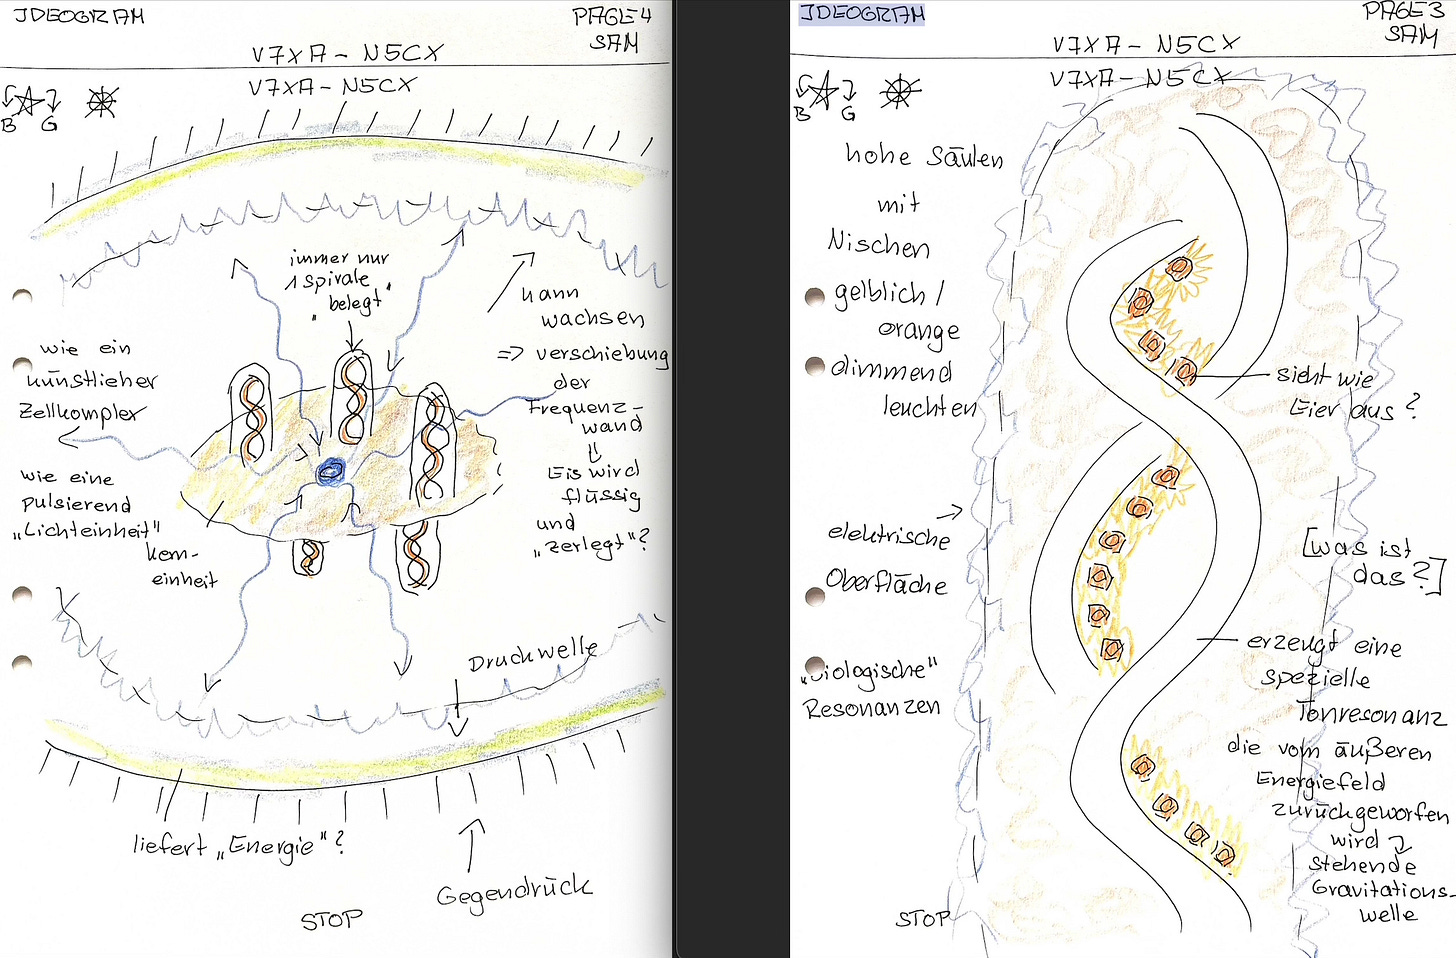 JDEOGRAM
PAGE 4
SAM
V7XA - N5CX
V7XA - N5CX
B G
immer nur
1 Spirale
"belegt"
kann
wachsen
=> verschiebung
der
Frequenz-
wand
⇓
Eis wird
flüssig
und
„zerlegt"?
wie ein
künstlicher
Zellkomplex
wie eine
pulsierend
„Lichteinheit"
kern-
einheit
Druckwelle
liefert „Energie"?
Gegendrück
STOP
JDEOGRAM
PAGE 3
SAM
V7XA - N5CX
V7XA - N5CX
B G
hohe Säulen
mit
Nischen
gelblich /
orange
dimmend
leuchten
sieht wie
Eier aus?
elektrische
Oberfläche
„biologische"
Resonanzen
[was ist
das?]
erzeugt eine
spezielle
Tonresonanz
die vom äußeren
Energiefeld
zurückgeworfen
wird
stehende
Gravitations-
welle
STOP